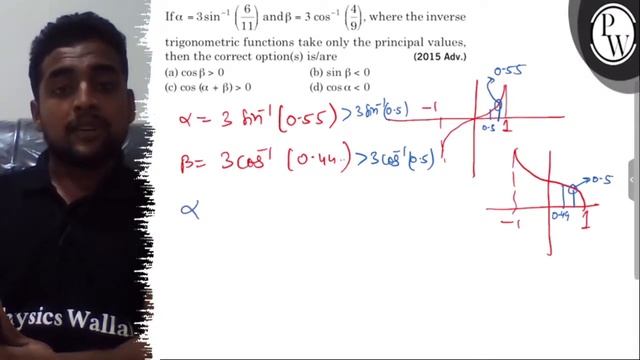 If α = 3 sin⁻¹ (6/11) and β = 3 cos⁻¹ (4/9), where the inverse
trigonometric functions take only the principal values,
then the correct option(s) is/are (2015 Adv.)
(a) cos β > 0 (b) sin β < 0
(c) cos (α + β) > 0 (d) cos α < 0
α = 3 sin⁻¹ (0.55) > 3 sin⁻¹ (0.5)
β = 3 cos⁻¹ (0.44..) > 3 cos⁻¹ (0.5)
α
0.55
-1
0.5
1
0.5
0.44
-1
1
PW
Physics Walla